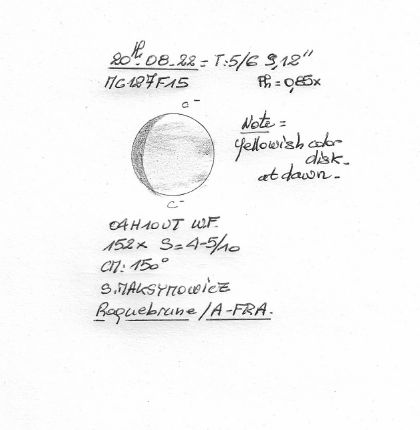 20th. 08. 22 = T: 5/6 9,12"
MC127F15 Ph = 0,85x
c-
Note =
Yellowish color
disk.
at dawn.
c-
04H10UT WF.
152x S=4-5/10
CM: 150°
S. MAKSYMOWICZ
Roquebrune / A-FRA.